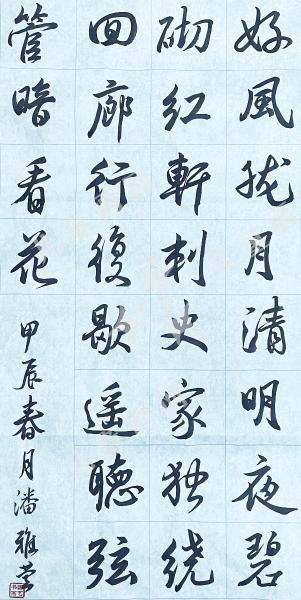 好風胧月清明夜碧
砌红軒刺史家独绕
回廊行復歇遥聽弦
管暗看花
甲辰春月潘雅